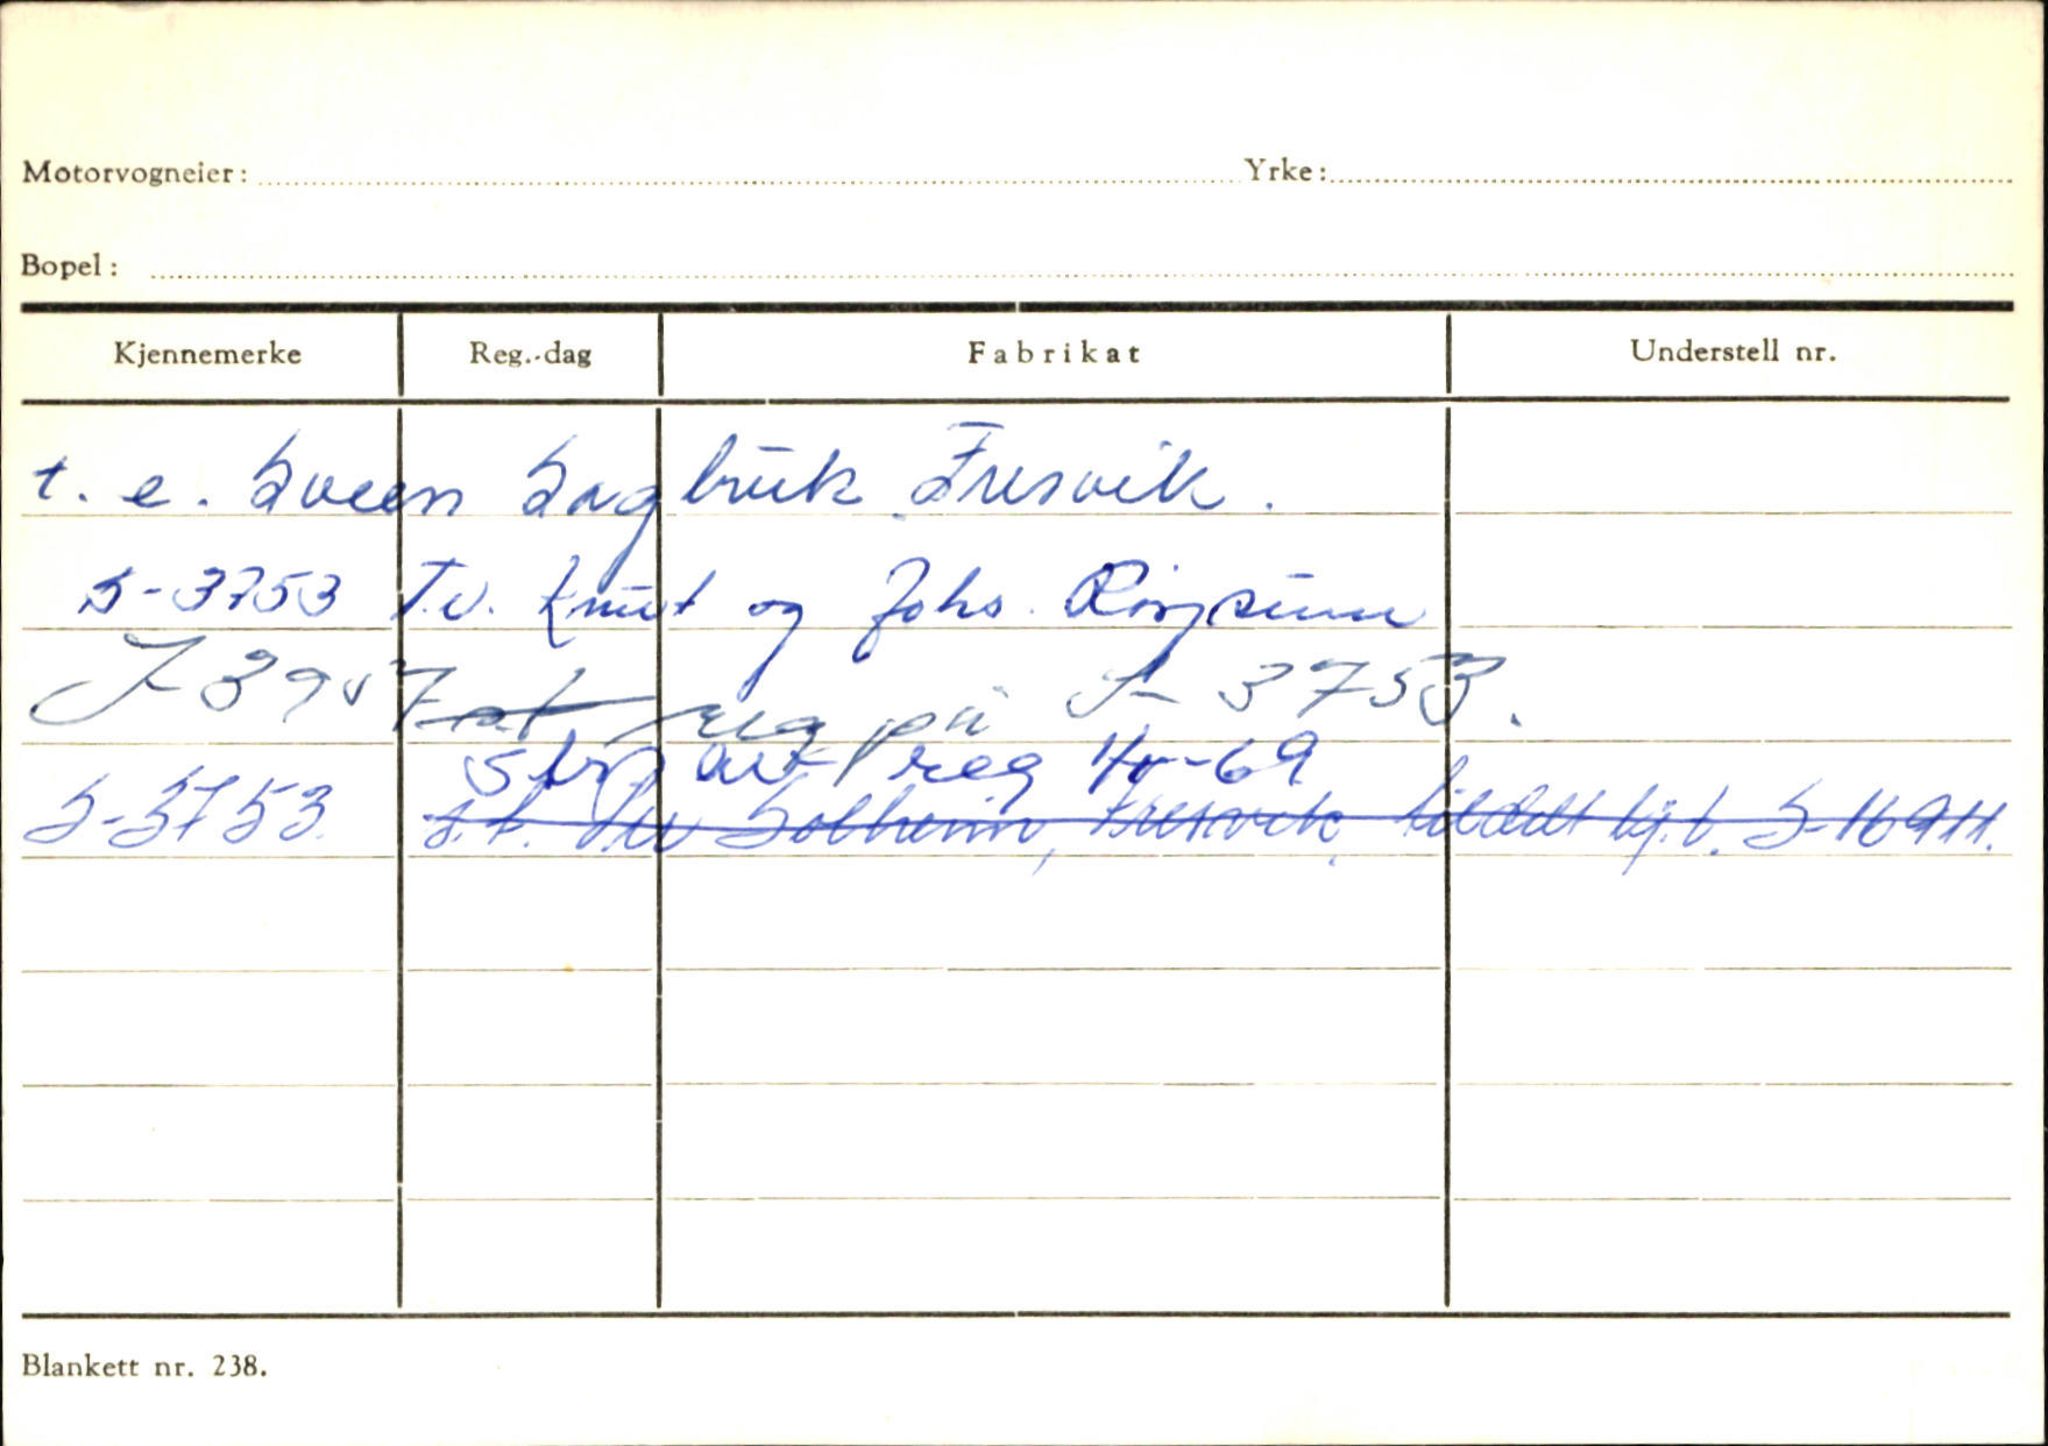 Motorvogneier: Yrke:
Bopel:
Kjennemerke Reg.-dag Fabrikat Understell nr.
t. e. Sveen Sagbruk Fresvik.
S-3753 T.v. Knut og Johs.
reg på S-3753.
str av reg -69
S-3753. Solheim, Fresvik, tildelt kj.t. S-16911.
Blankett nr. 238.